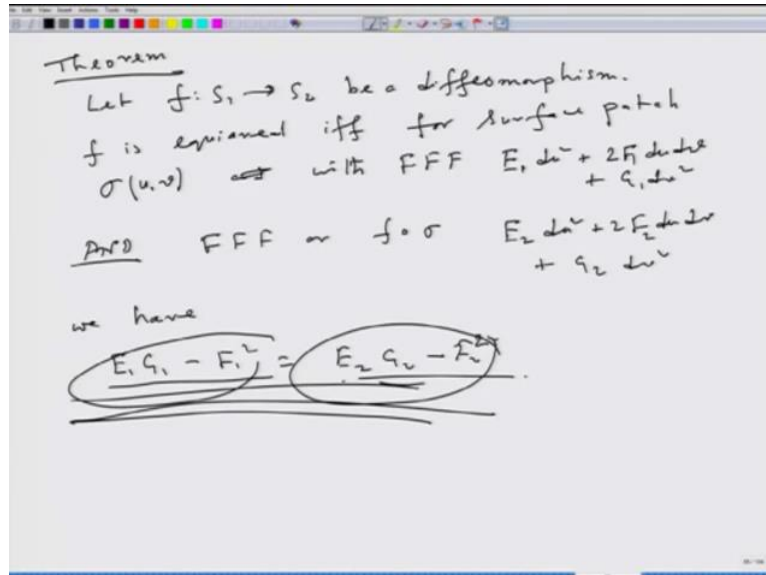 Theorem
Let f: S₁ → S₂ be a diffeomorphism.
f is equiareal iff for surface patch
σ(u,v) with FFF E₁ du² + 2F₁ du dv
+ G₁ dv²
AND FFF or f∘σ E₂ du² + 2F₂ du dv
+ G₂ dv²
we have
E₁G₁ − F₁² = E₂G₂ − F₂²